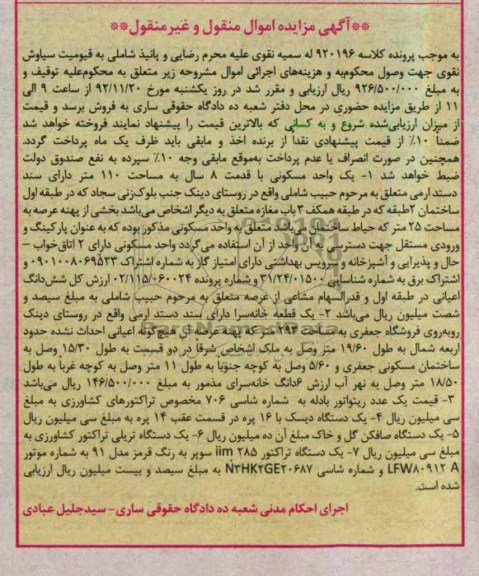 **آگهی مزایده اموال منقول و غیرمنقول**
به موجب پرونده کلاسه ۹۲۰۱۹۶ له سمیه نقوی علیه محرم رضایی و پانیذ شاملی به قیومیت سیاوش
نقوی جهت وصول محکوم‌به و هزینه‌های اجرائی اموال مشروحه زیر متعلق به محکوم‌علیه توقیف و
به مبلغ ۹۲۶/۵۰۰/۰۰۰ ریال ارزیابی و مقرر شد در روز یکشنبه مورخ ۹۲/۱۱/۲۰ از ساعت ۹ الی
۱۱ از طریق مزایده حضوری در محل دفتر شعبه ده دادگاه حقوقی ساری به فروش برسد و قیمت
از میزان ارزیابی‌شده شروع و به کسانی که بالاترین قیمت را پیشنهاد نمایند فروخته خواهد شد
ضمناً ۱۰٪ از قیمت پیشنهادی نقداً از برنده اخذ و مابقی باید ظرف یک ماه پرداخت گردد.
همچنین در صورت انصراف یا عدم پرداخت به‌موقع مابقی وجه ۱۰٪ سپرده به نفع صندوق دولت
ضبط خواهد شد ۱- یک واحد مسکونی با قدمت ۸ سال به مساحت ۱۱۰ متر دارای سند
دستد ارمی متعلق به مرحوم حبیب شاملی واقع در روستای دینک جنب بلوک‌زنی سجاد که در طبقه اول
ساختمان ۲طبقه که در طبقه همکف ۳ باب مغازه متعلق به دیگر اشخاص می‌باشد بخشی از پهنه عرصه به
مساحت ۲۵ متر که حیاط ساختمان می‌باشد متعلق به واحد مسکونی مذکور بوده که به عنوان پارکینگ و
ورودی مستقل جهت دسترسی به آن واحد از آن استفاده می‌گردد واحد مسکونی دارای ۲ اتاق‌خواب –
حال و پذیرایی و آشپزخانه و سرویس بهداشتی دارای امتیاز گاز به شماره اشتراک ۰۹۰۱۰۰۸۰۶۹۵۲۳ و
اشتراک برق به شماره شناسایی ۳۱/۲۴/۰۱۵۰۰ و شماره پرونده ۰۲/۱۱۵/۰۶۰۰۲۴ ارزش کل شش‌دانگ
اعیانی در طبقه اول و قدرالسهام مشاعی از عرصه متعلق به مرحوم حبیب شاملی به مبلغ سیصد و
شصت میلیون ریال می‌باشد ۲- یک قطعه خانه‌سرا دارای سند دستد ارمی واقع در روستای دینک
روبه‌روی فروشگاه جعفری به مساحت ۲۹۳ متر که پهنه عرصه آن هیچ‌گونه اعیانی احداث نشده حدود
اربعه شمال به طول ۱۹/۶۰ متر وصل به ملک اشخاص شرقا در دو قسمت به طول ۱۵/۳۰ وصل به
ساختمان مسکونی جعفری و ۵/۶۰ وصل به کوچه جنوباً به طول ۱۱ متر وصل به کوچه غرباً به طول
۱۸/۵۰ متر وصل به نهر آب ارزش ۶دانگ خانه‌سرای مذکور به مبلغ ۱۴۶/۵۰۰/۰۰۰ ریال می‌باشد
۳- قیمت یک عدد ریتواتور بادله به شماره شاسی ۷۰۶ مخصوص تراکتورهای کشاورزی به مبلغ
سی میلیون ریال ۴- یک دستگاه دیسک با ۱۶ پره در قسمت عقب ۱۴ پره به مبلغ سی میلیون ریال
۵- یک دستگاه صافکن گل و خاک مبلغ آن ده میلیون ریال ۶- یک دستگاه تریلی تراکتور کشاورزی به
مبلغ سی میلیون ریال ۷- یک دستگاه تراکتور iim ۲۸۵ سوپر به رنگ قرمز مدل ۹۱ به شماره موتور
LFW۸۰۹۱۲ A و شماره شاسی N۳HK۲GE۲۰۶۸۷ به مبلغ سیصد و بیست میلیون ریال ارزیابی
شده است.
اجرای احکام مدنی شعبه ده دادگاه حقوقی ساری- سیدجلیل عبادی